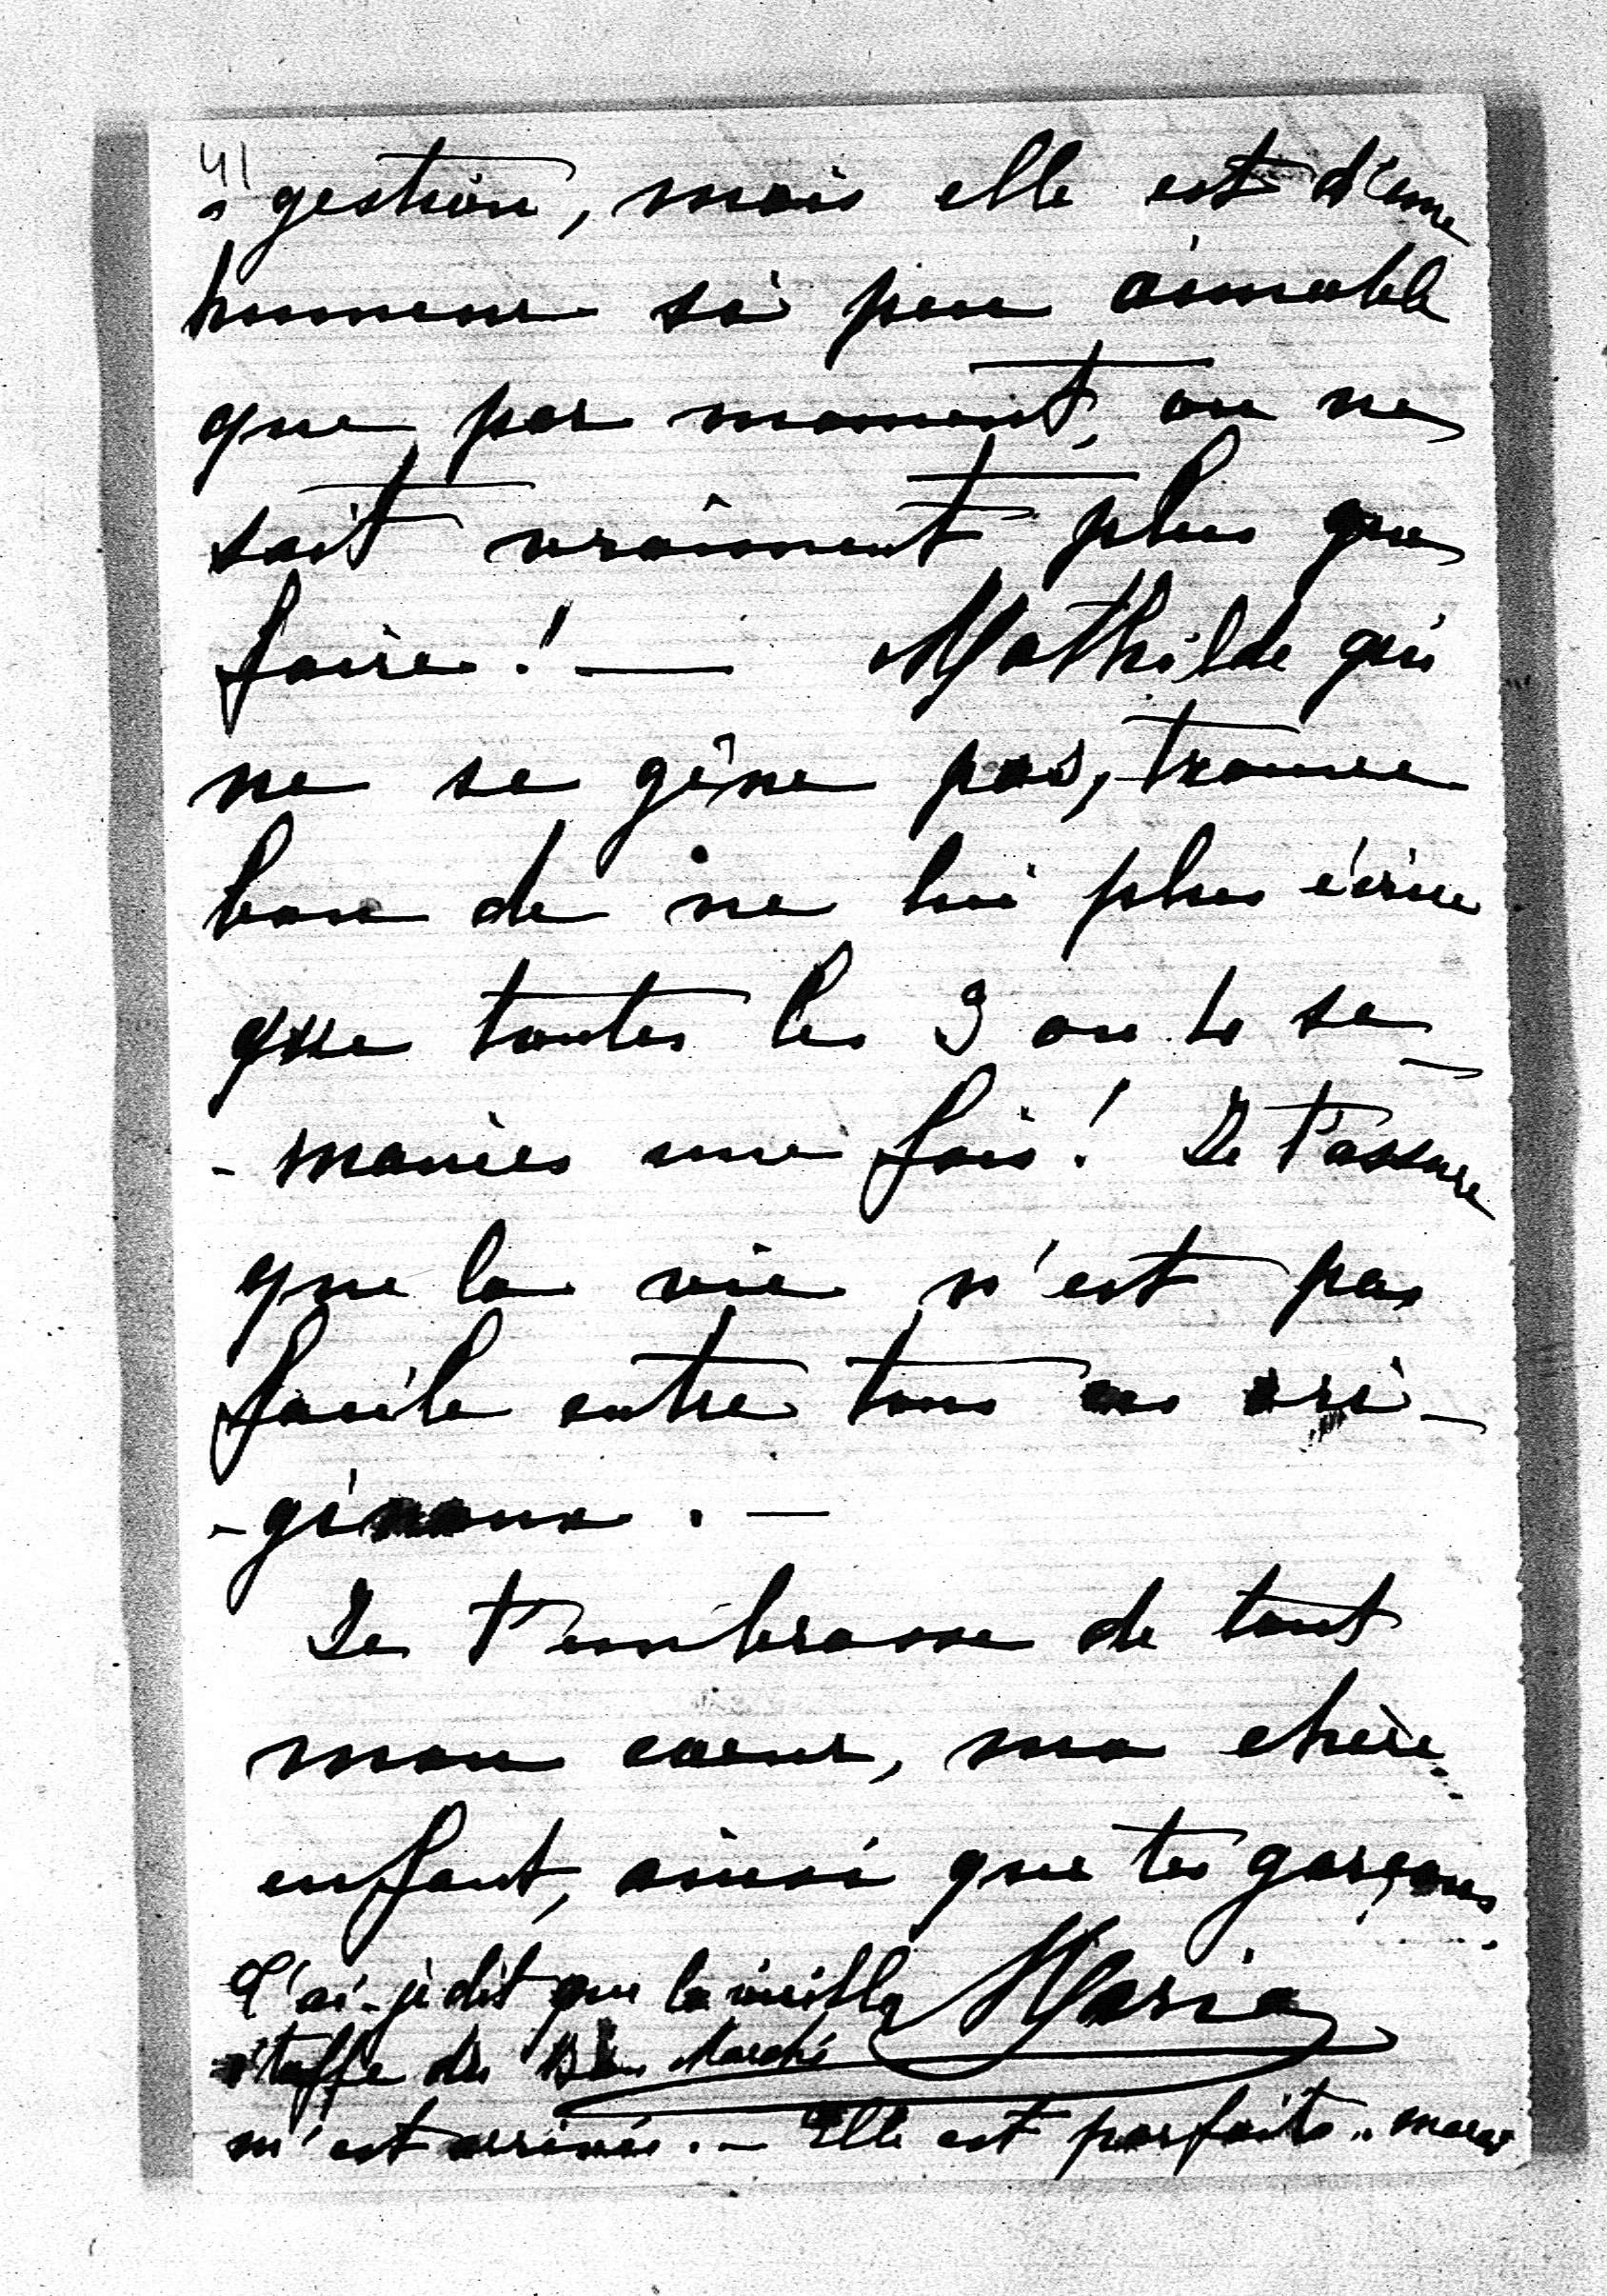 4)
"gestion, mais elle est d'une
humeur si peu aimable
que par moment, on ne
sait vraiment plus que
faire! — Mathilde qui
ne se gêne pas, trouve
bon de ne lui plus écrire
que toutes les 3 ou 4 se-
-maines une fois! Je t'assure
que la vie n'est pas
facile entre tous ces ori-
-ginaux. —
Je t'embrasse de tout
mon coeur, ma chère
enfant, ainsi que tes garçons.
Maria
T'ai-je dit que la vieille
étoffe du Bon Marché
m'est arrivée. — Elle est parfaite "merci